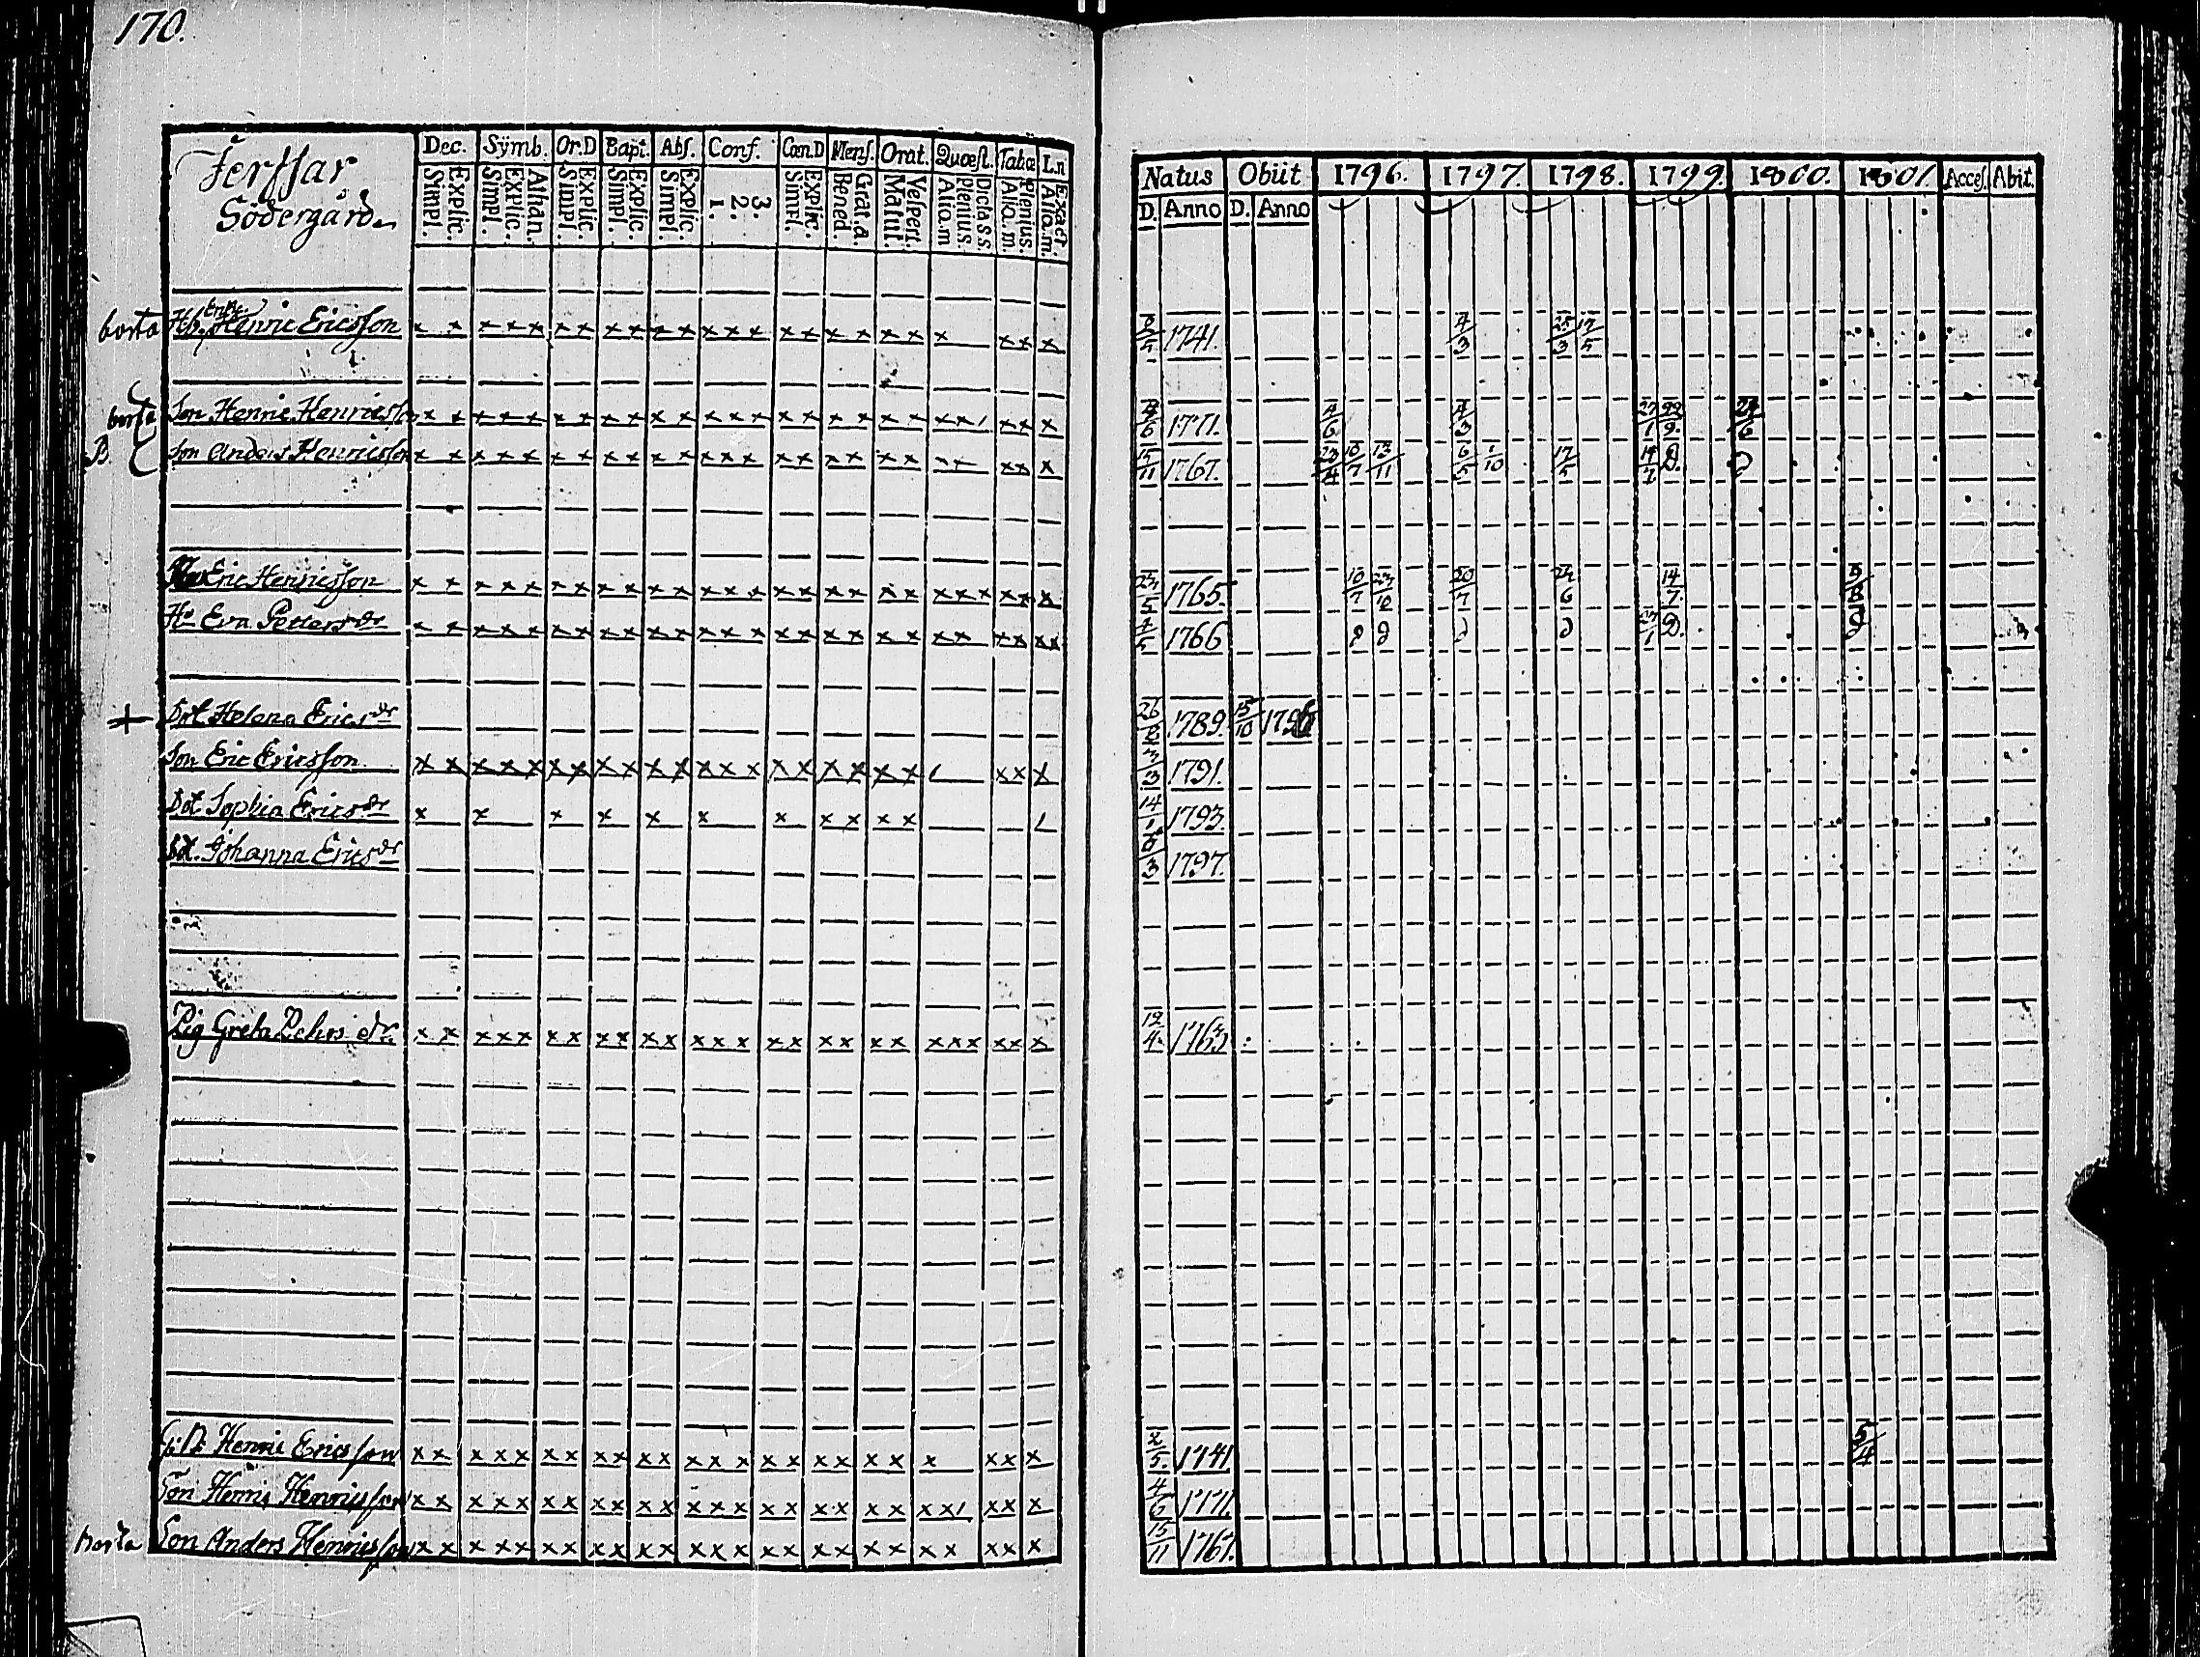 170.
Jerssar
Södergården
Dec. Sÿmb. Or.D Bapt. Abs. Conf. Cœn.D Mens. Orat. Quœst. Tabœ L.n
Explic. Simpl. Athan. Explic. Simpl. Explic. Simpl. Explic. Simpl. Explic. Simpl. 3. 2. 1. Explic. Simpl. Grat.a. Bened. Vespert. Matut. Dicta s.s. Plenius. Aliq.m plenius. Aliq.m. Exact. Aliq.m.
Natus Obiit 1796. 1797. 1798. 1799. 1800. 1801. Acces. Abit.
D. Anno D. Anno
borta Henric Ericsson x x x x x x x x x x x x x x x x x x x x x x x x x 1741. 4/3 25/3 17/5
borta Son Henric Henricsson x x x x x x x x x x x x x x x x x x x x x x x x 4/6 1771. 4/6 4/3 27/1 24/6
B. Son Anders Henricsson x x x x x x x x x x x x x x x x x x x x x x x x x 15/11 1767. 23/4 10/7 13/11 6/5 1/10 17/5 14/7
Eric Henricsson x x x x x x x x x x x x x x x x x x x x x x x x x x 23/5 1765. 10/7 20/7 24/6 14/7.
Hu Eva Pettersdr x x x x x x x x x x x x x x x x x x x x x x x x x x 1766 27/1
+ Dot Helena Ericsdr 26/8 1789. 15/10 1796
Son Eric Ericsson x x x x x x x x x x x x x x x x x x x x x x x 3/3 1791.
Dot Sophia Ericsdr x x x x x x x x x x x 14/1 1793.
Dot. Johanna Ericsdr 6/3 1797.
Pig Greta Pehrsdr. x x x x x x x x x x x x x x x x x x x x x x x x x x 12/4. 1763
Henric Ericsson x x x x x x x x x x x x x x x x x x x x x x x 2/5. 1741 5/4
Son Henric Henricsson x x x x x x x x x x x x x x x x x x x x x x x x 4/6 1771.
borta Son Anders Henricsson x x x x x x x x x x x x x x x x x x x x x x x x 15/11 1767.